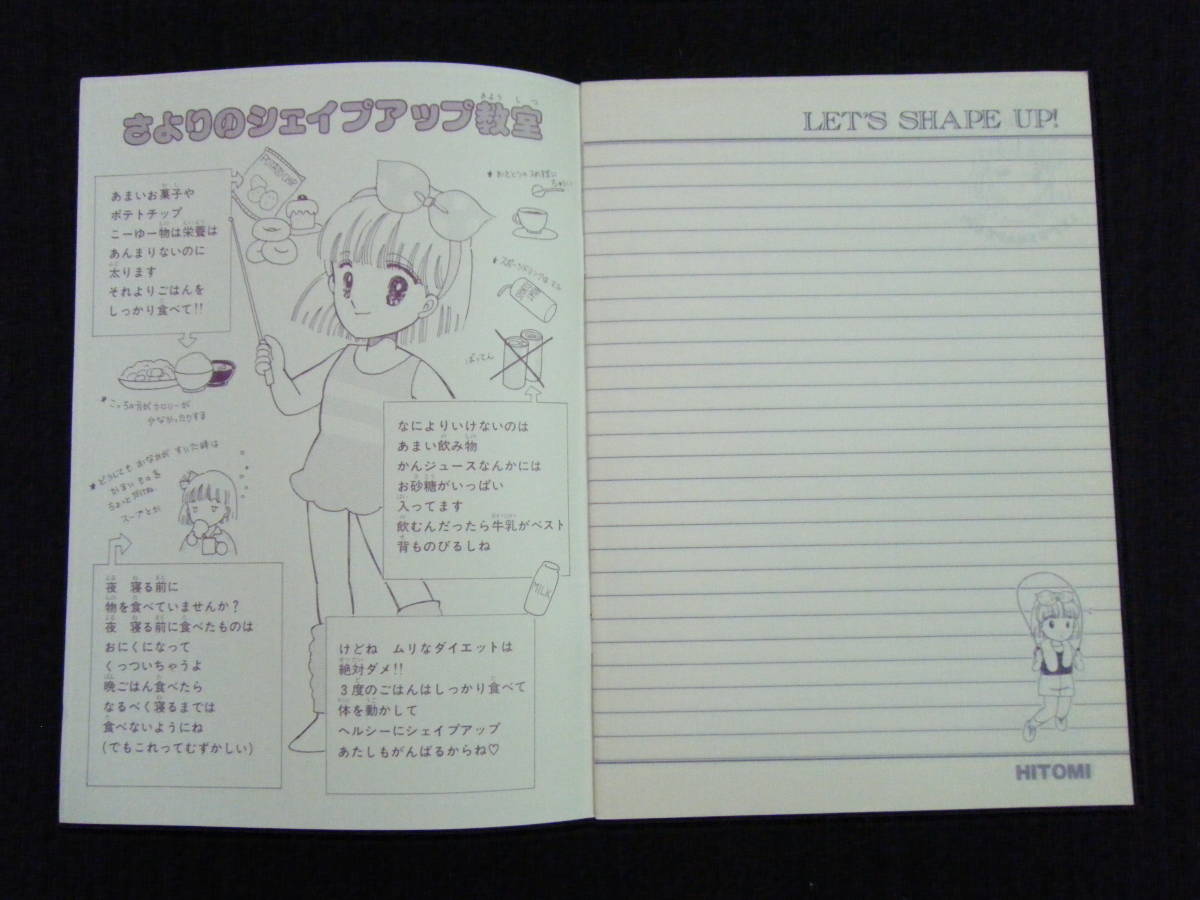 さよりのシェイプアップ教室
あまいお菓子や
ポテトチップ
こーゆー物は栄養は
あんまりないのに
太ります
それよりごはんを
しっかり食べて!!
POTATO CHIP
*こっちの方がカロリーが
少なかったりする
*スポーツドリンクはマル
ばってん
なによりいけないのは
あまい飲み物
かんジュースなんかには
お砂糖がいっぱい
入ってます
飲むんだったら牛乳がベスト
背ものびるしね
MILK
*どうしてもおなかがすいた時は
スープとか
夜 寝る前に
物を食べていませんか?
夜 寝る前に食べたものは
おにくになって
くっついちゃうよ
晩ごはん食べたら
なるべく寝るまでは
食べないようにね
(でもこれってむずかしい)
けどね ムリなダイエットは
絶対ダメ!!
3度のごはんはしっかり食べて
体を動かして
ヘルシーにシェイプアップ
あたしもがんばるからね♡
LET'S SHAPE UP!
HITOMI